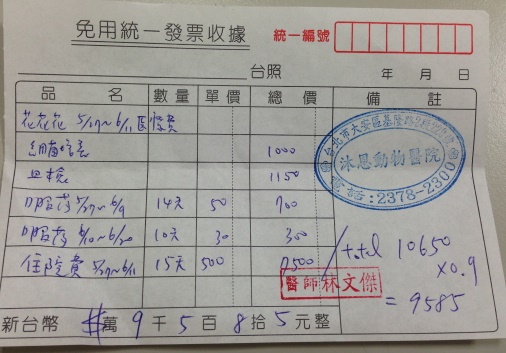 免用統一發票收據 統一編號
台照 年 月 日
品名 數量 單價 總價 備註
花花花 5/27~6/11 醫療費
細菌培養 1000
血檢 1150
口服药 5/27~6/9 14天 50 700
口服药 6/10~6/20 10天 30 300
住院費 5/27~6/11 15天 500 7500
台北市大安區基隆路
沐恩動物醫院
電話:2378-2300
醫師林文傑
total 10650
x0.9
= 9585
新台幣 萬 9 千 5 百 8 拾 5 元整